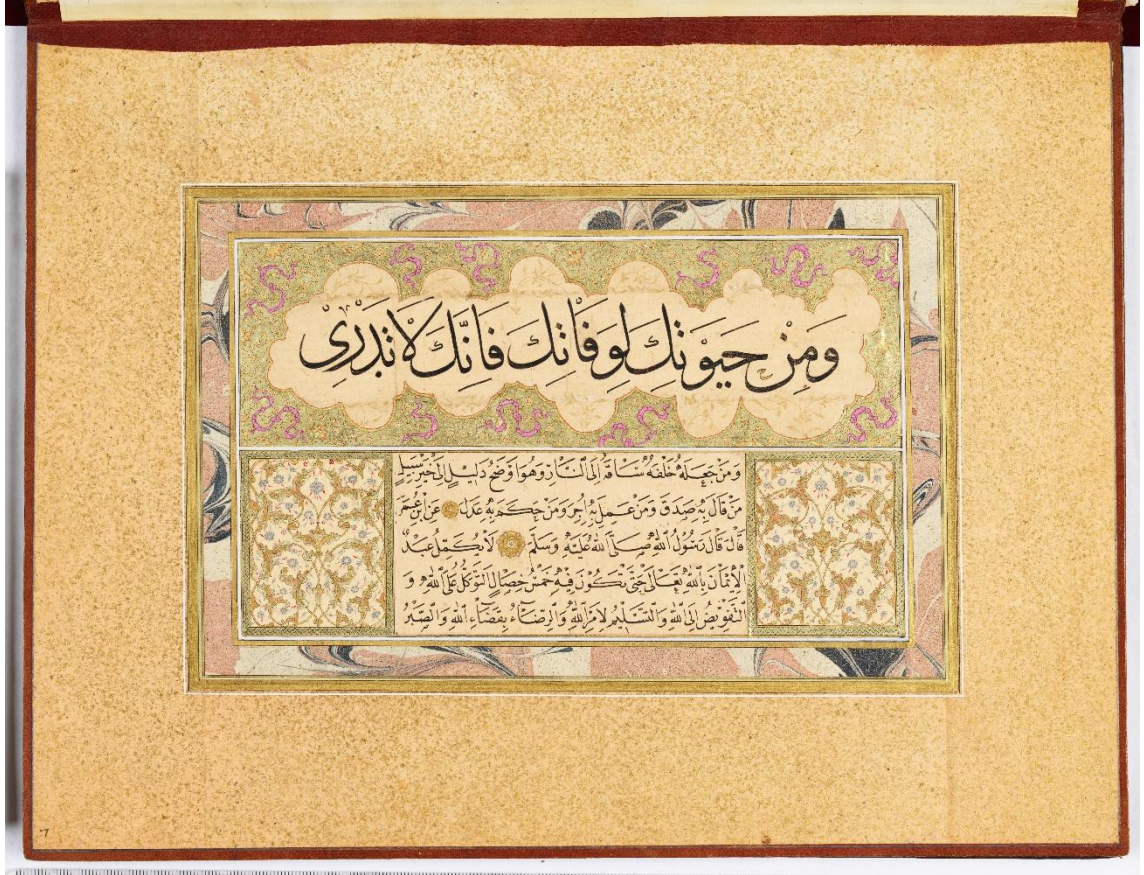 وَمِنْ حَيٰوتِكَ لِوَفَاتِكَ فَاِنَّكَ لَاتَدْرِىْ
وَمَنْ جَعَلَهُ خَلْفَهُ سَاقَهُ اِلَى النَّارِ وَهُوَ اَوْضَحُ دَلِيْلٍ اِلَى خَيْرِ سَبِيْلٍ
مَنْ قَالَ بِهِ صَدَقَ وَمَنْ عَمِلَ بِهِ اُجِرَ وَمَنْ حَكَمَ بِهِ عَدَلَ عَنِ ابْنِ عُمَرَ
قَالَ قَالَ رَسُوْلُ اللّٰهِ صَلَّى اللّٰهُ عَلَيْهِ وَسَلَّمَ لَا يَكْمُلُ عَبْدٌ
الْاِيْمَانَ بِاللّٰهِ تَعَالَى حَتّٰى تَكُوْنَ فِيْهِ خَمْسُ خِصَالٍ التَّوَكُّلُ عَلَى اللّٰهِ وَ
التَّفْوِيْضُ اِلَى اللّٰهِ وَالتَّسْلِيْمُ لِاَمْرِ اللّٰهِ وَالرِّضَاءُ بِقَضَاءِ اللّٰهِ وَالصَّبْرُ
7